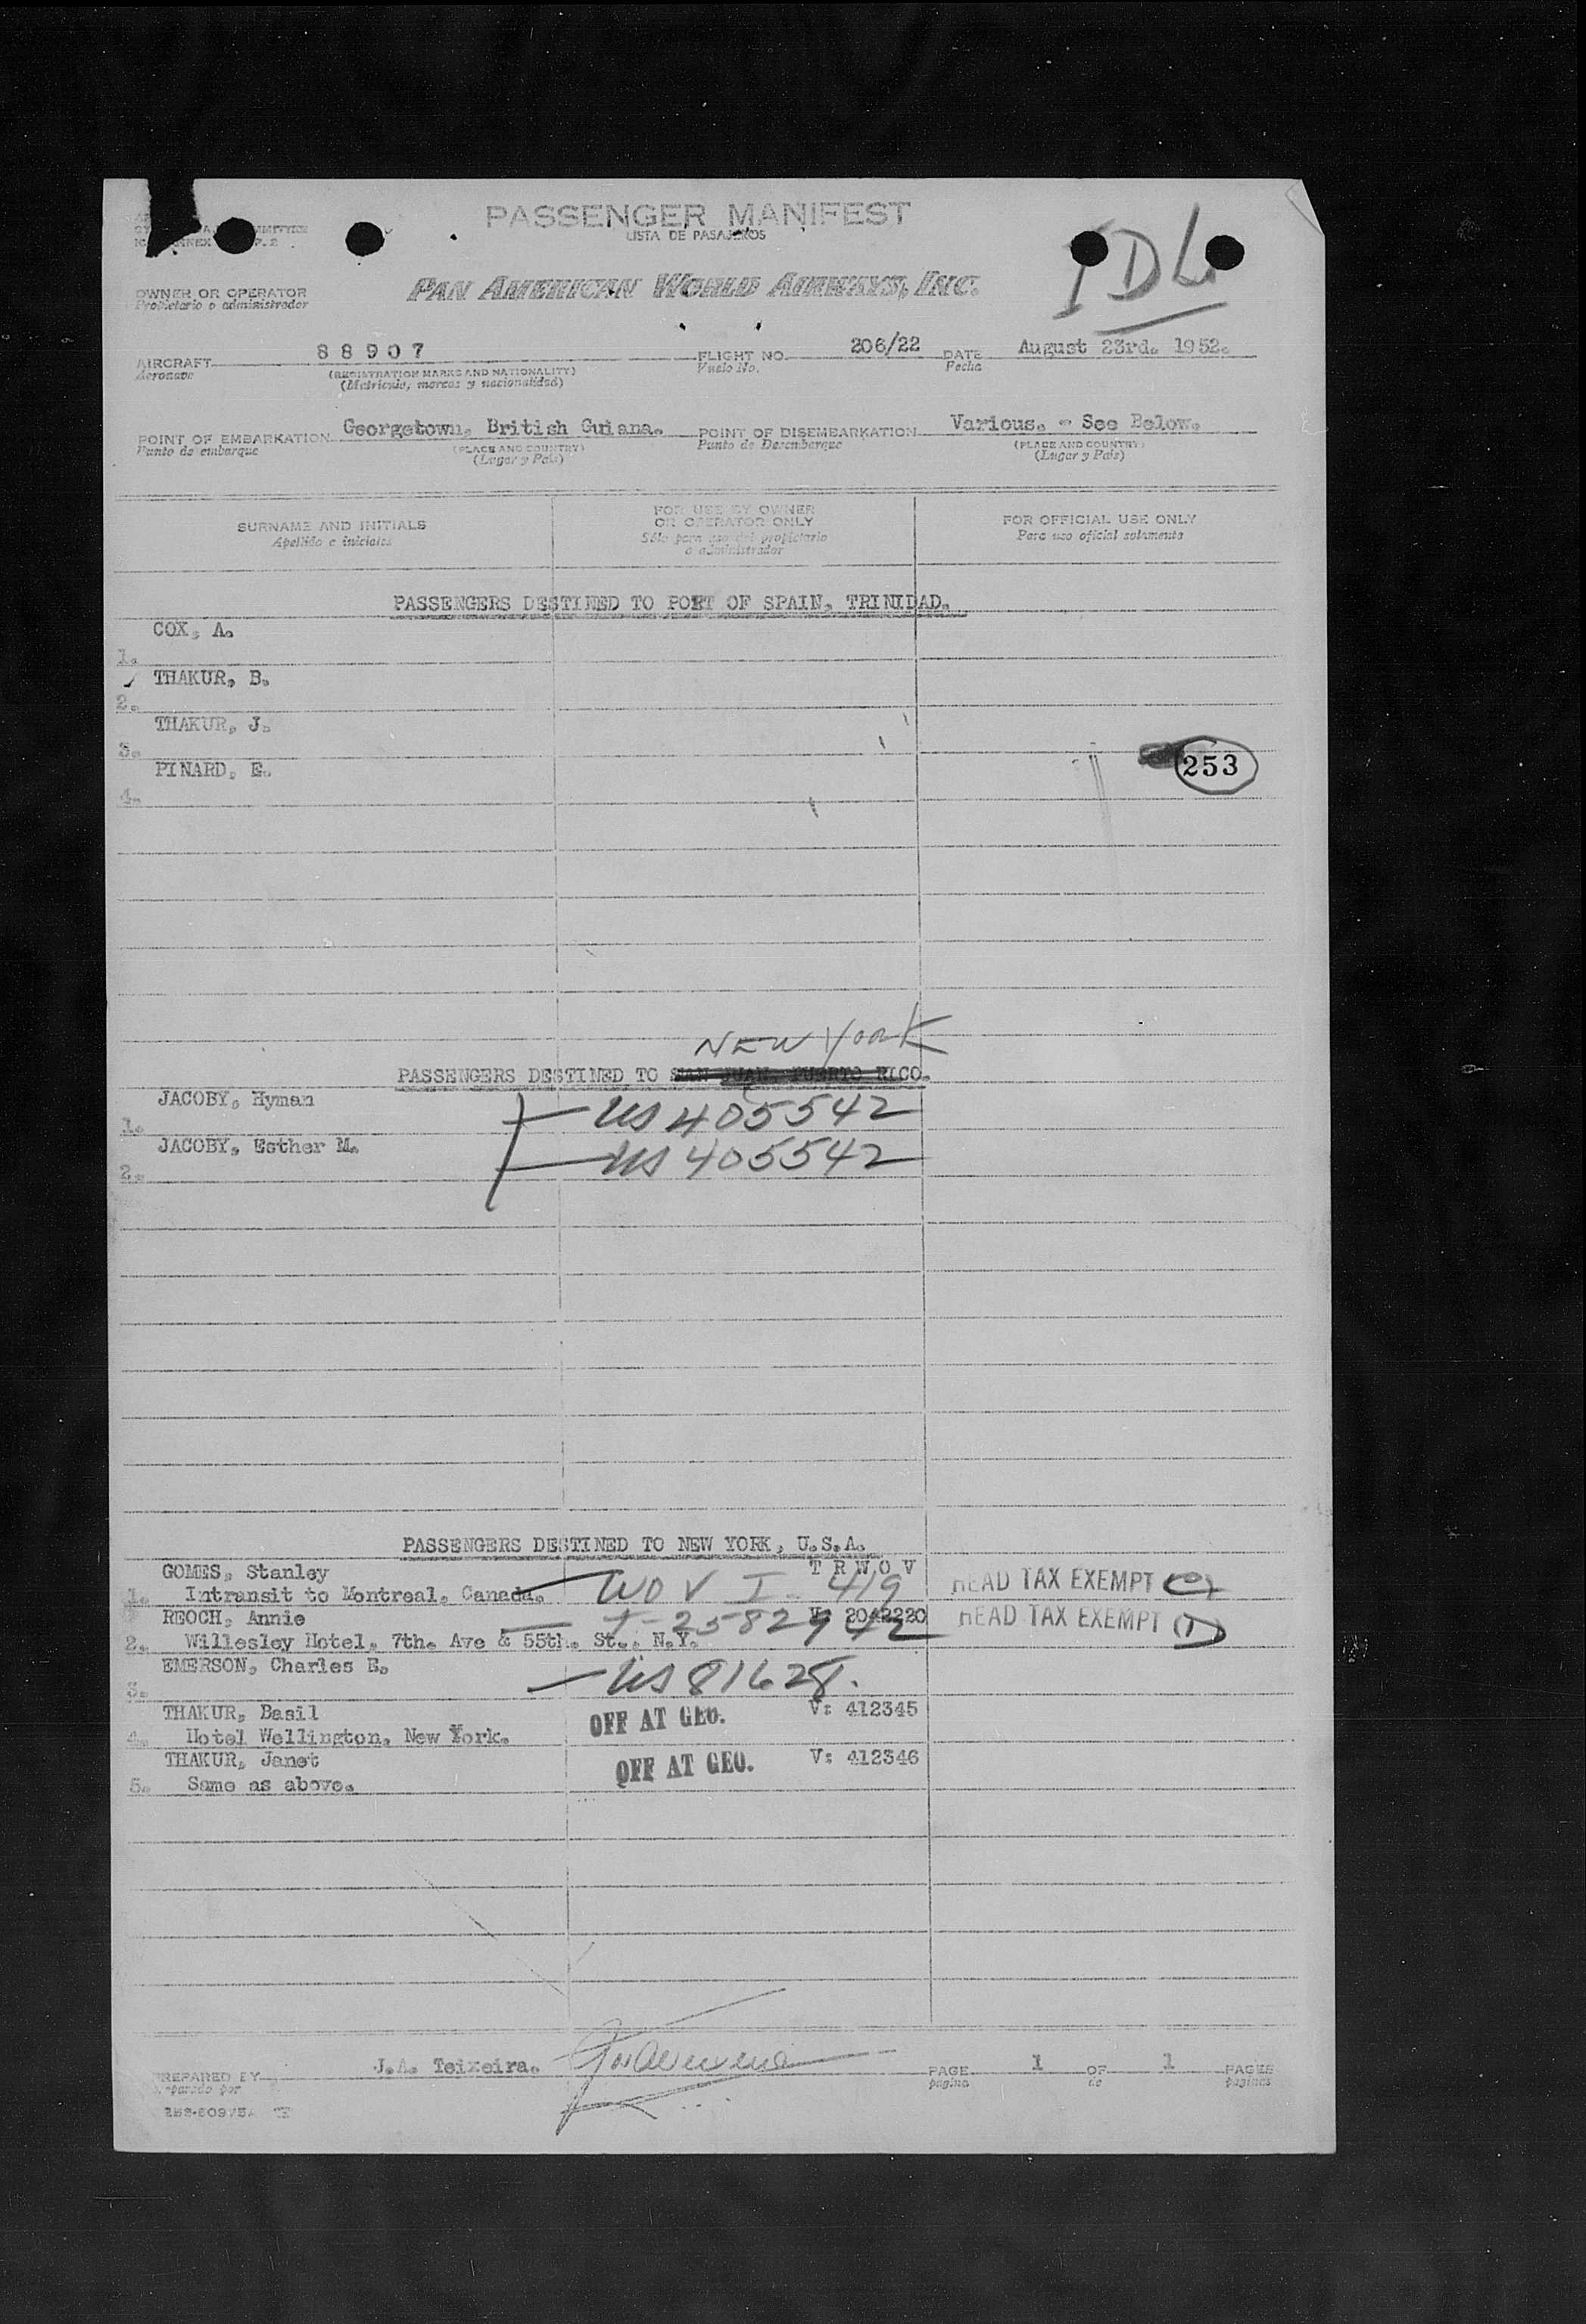 PASSENGER MANIFEST
LISTA DE PASAJEROS
IDL
OWNER OR OPERATOR
Propietario o administrador
PAN AMERICAN WORLD AIRWAYS, INC.
AIRCRAFT 88907 FLIGHT NO. 206/22 DATE August 23rd. 1952.
Aeronave (REGISTRATION MARKS AND NATIONALITY) Vuelo No. Fecha
(Matricula, marcas y nacionalidad)
POINT OF EMBARKATION Georgetown, British Guiana. POINT OF DISEMBARKATION Various. - See Below.
Punto de embarque (PLACE AND COUNTRY) Punto de Desembarque (PLACE AND COUNTRY)
(Lugar y País) (Lugar y País)
SURNAME AND INITIALS FOR USE BY OWNER OR OPERATOR ONLY FOR OFFICIAL USE ONLY
Apellido e iniciales Sólo para uso del propietario o administrador Para uso oficial solamente
PASSENGERS DESTINED TO PORT OF SPAIN, TRINIDAD.
COX, A.
1.
THAKUR, B.
2.
THAKUR, J.
3.
253
PINARD, E.
4.
NEW YORK
PASSENGERS DESTINED TO SAN JUAN, PUERTO RICO.
JACOBY, Hyman
1. US 405542
JACOBY, Esther M.
2. US 405542
PASSENGERS DESTINED TO NEW YORK, U.S.A.
GOMES, Stanley T R W O V
1. Intransit to Montreal, Canada. WOV I-419 HEAD TAX EXEMPT
REOCH, Annie V: 2042220 HEAD TAX EXEMPT
2. Willesley Hotel, 7th. Ave & 55th. St., N.Y.
EMERSON, Charles E.
3. US 81628.
THAKUR, Basil OFF AT GEO. V: 412345
4. Hotel Wellington, New York.
THAKUR, Janet OFF AT GEO. V: 412346
5. Same as above.
PREPARED BY J.A. Teixeira. PAGE 1 OF 1 PAGES
Preparado por página de páginas